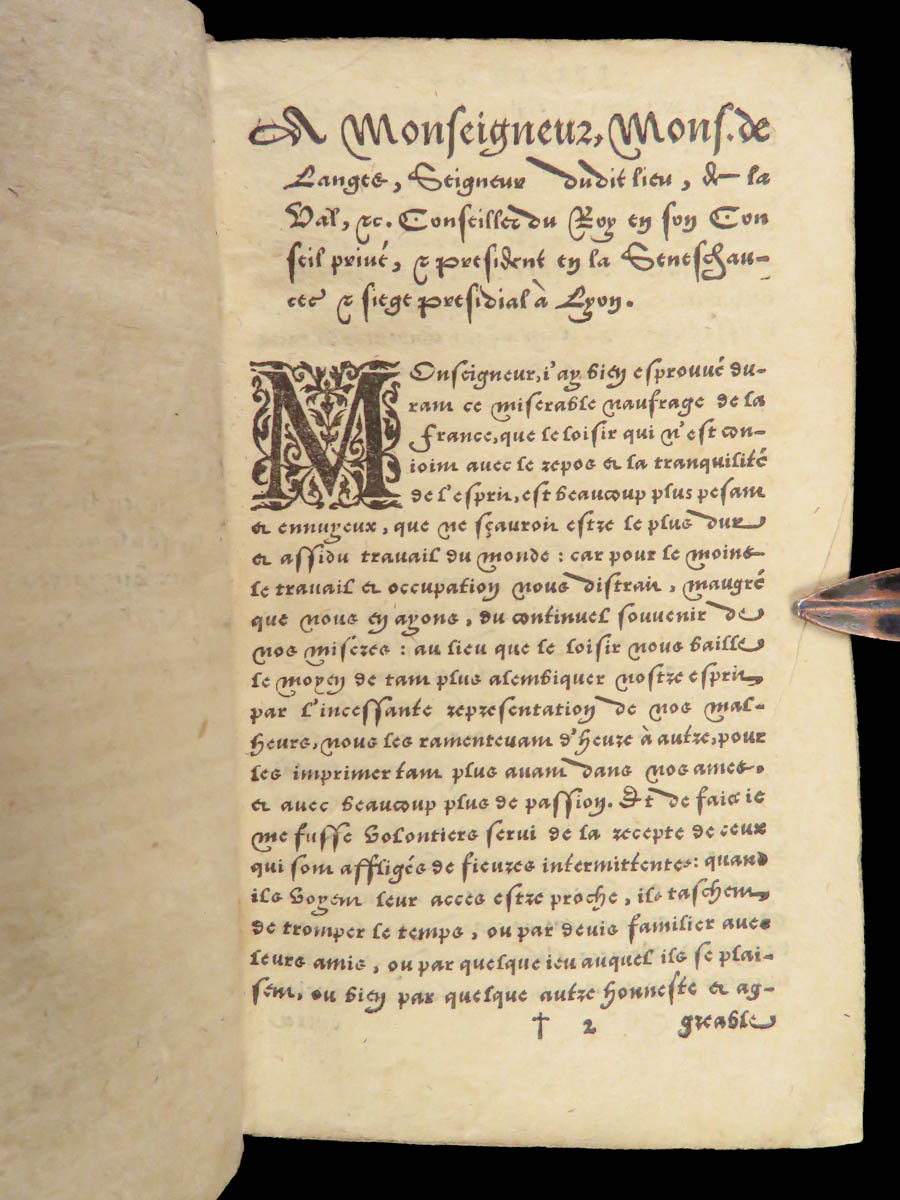 A Monseigneur, Mons. de
Langes, Seigneur dudit lieu, de la
Val, &c. Conseiller du Roy en son Con
seil privé, & president en la Seneschau-
cee & siege presidial à Lyon.
MOnseigneur, i'ay bien esprouvé du-
rant ce miserable naufrage de la
France, que le loisir qui n'est con-
ioint avec le repos & la tranquilité
de l'esprit, est beaucoup plus pesant
& ennuyeux, que ne sçauroit estre le plus dur
& assidu travail du monde : car pour le moins
le travail & occupation nous distrait, maugré
que nous en ayons, du continuel souvenir de
nos miseres : au lieu que le loisir nous baille
le moyen de tant plus alembiquer nostre esprit,
par l'incessante representation de nos mal-
heurs, nous les ramentevant d'heure à autre, pour
les imprimer tant plus avant dans nos ames,
& avec beaucoup plus de passion. Et de faict ie
me fusse volontiers servi de la recepte de ceux
qui sont affligés de fievres intermittentes : quand
ils voyent leur acces estre proche, ils taschent
de tromper le temps, ou par devis familier avec
leurs amis, ou par quelque ieu auquel ils se plai-
sent, ou bien par quelque autre honneste & ag-
† 2 greable